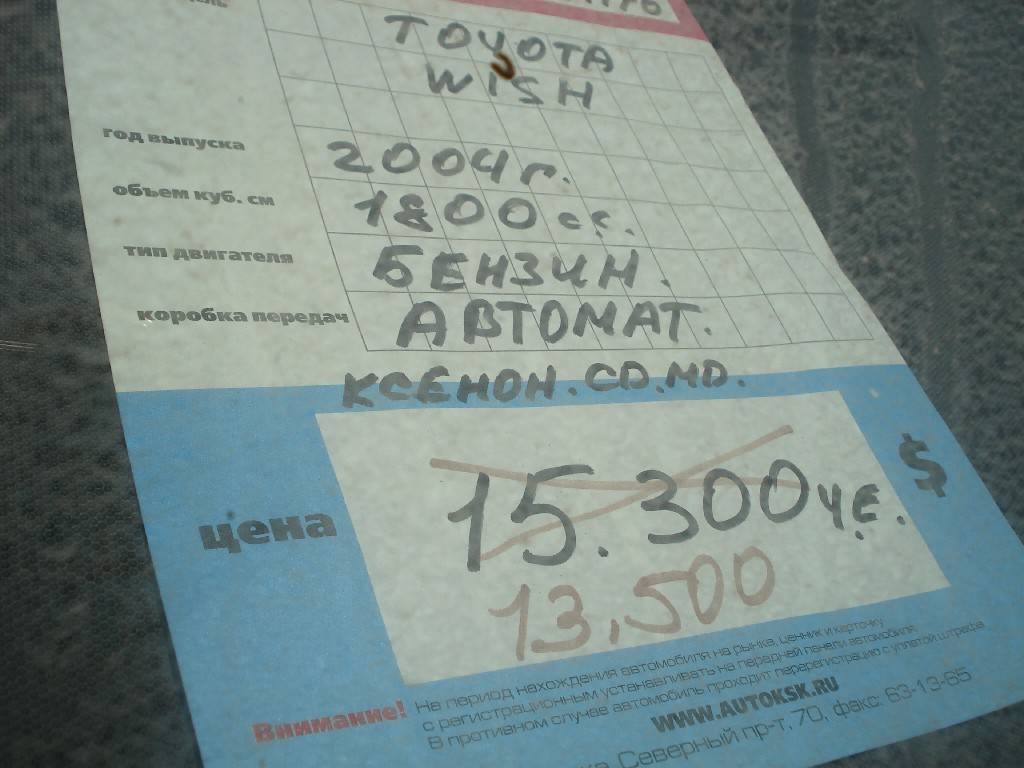 TOYOTA
WISH
год выпуска 2004 г.
объем куб. см 1800 сс.
тип двигателя БЕНЗИН.
коробка передач АВТОМАТ.
КСЕНОН. CD. MD.
цена 15.300 у.е. $
13,500
Внимание! На период нахождения автомобиля на рынке, ценник и карточку
с регистрационным устанавливать на передней панели автомобиля.
В противном случае автомобиль проходит перерегистрацию с уплатой штрафа
WWW.AUTOKSK.RU
Северный пр-т, 70, факс: 63-13-65